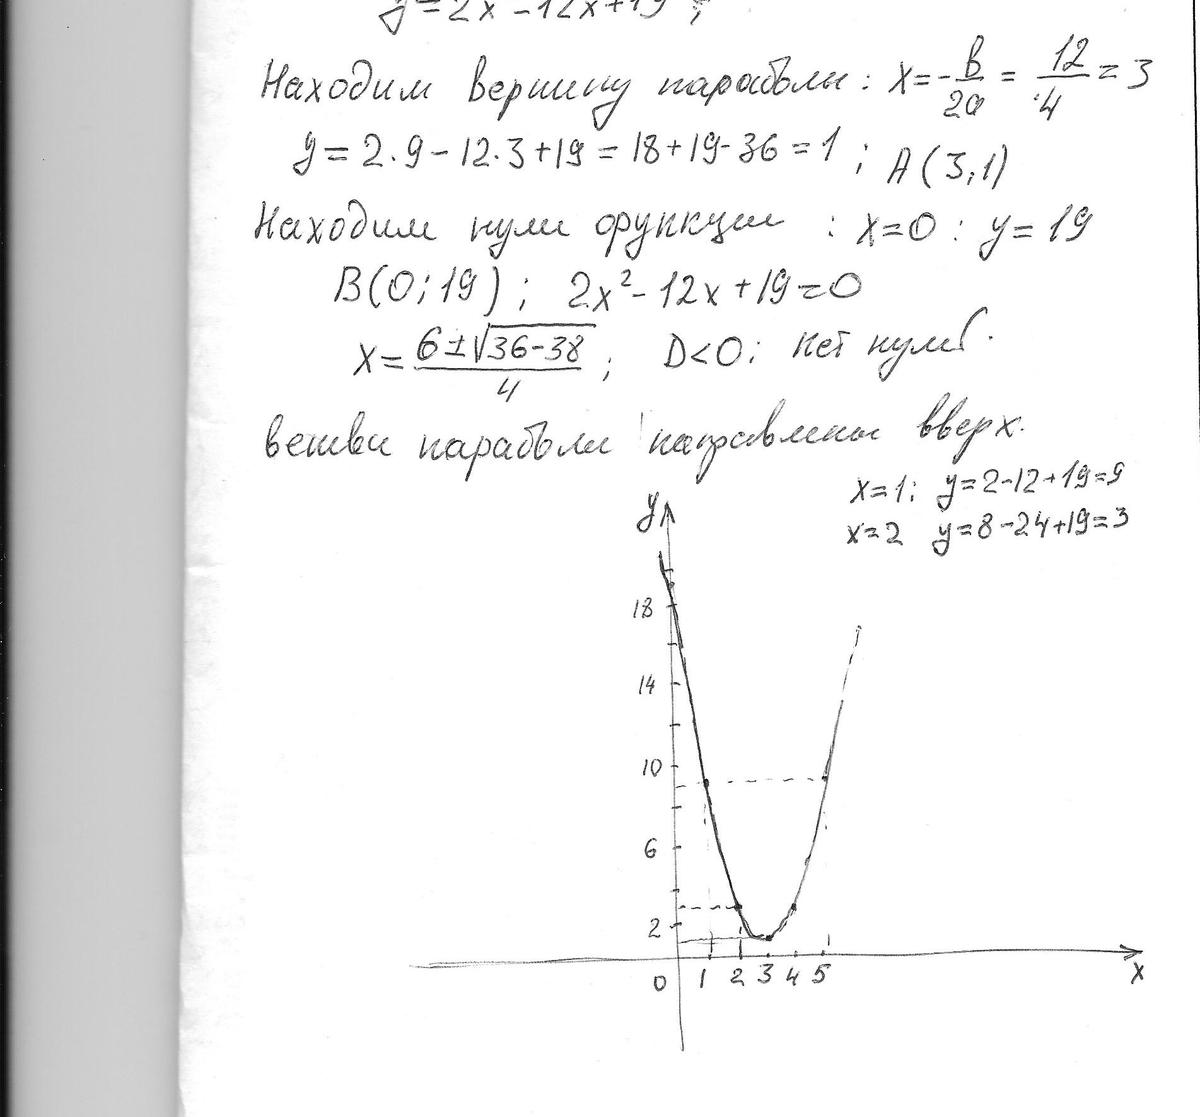 y=2x²-12x+19;
Находим вершину параболы: x=-в/2a = 12/4 = 3
y=2·9-12·3+19=18+19-36=1; A(3,1)
Находим нули функции: x=0: y=19
B(0;19); 2x²-12x+19=0
x=(6±√36-38)/4; D<0; нет нулей.
ветви параболы направлены вверх.
x=1; y=2-12+19=9
x=2 y=8-24+19=3
y
18
14
10
6
2
0 1 2 3 4 5 x